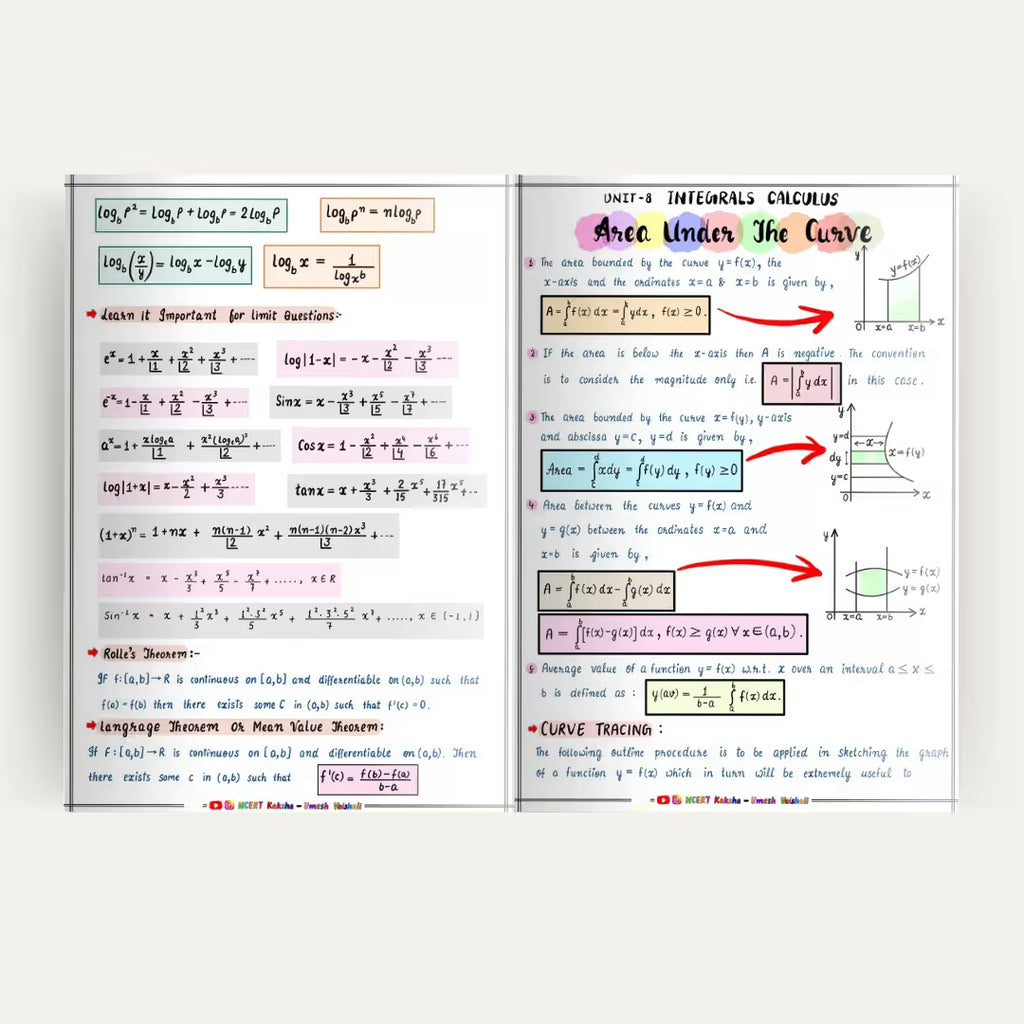 log_b P² = log_b P + log_b P = 2 log_b P
log_b P^n = n log_b P
log_b (x/y) = log_b x - log_b y
log_b x = 1/log_x b
Learn It Important for limit Questions:-
e^x = 1 + x/⌊1 + x²/⌊2 + x³/⌊3 + ----
log|1-x| = -x - x²/2 - x³/3 ----
e^-x = 1 - x/⌊1 + x²/⌊2 - x³/⌊3 + ----
Sinx = x - x³/⌊3 + x⁵/⌊5 - x⁷/⌊7 + ----
a^x = 1 + x log_e a/⌊1 + x²(log_e a)²/⌊2 + ----
Cosx = 1 - x²/⌊2 + x⁴/⌊4 - x⁶/⌊6 + ----
log|1+x| = x - x²/2 + x³/3 ----
tanx = x + x³/3 + 2/15 x⁵ + 17/315 x⁵ + --
(1+x)^n = 1 + nx + n(n-1)/⌊2 x² + n(n-1)(n-2)x³/⌊3 + ---
tan⁻¹x = x - x³/3 + x⁵/5 - x⁷/7 + ....., x ∈ R
Sin⁻¹x = x + 1²/3 x³ + 1²·3²/5 x⁵ + 1²·3²·5²/7 x⁷ + ....., x ∈ [-1,1]
Rolle's Theorem:-
If f:[a,b]→R is continuous on [a,b] and differentiable on (a,b) such that
f(a) = f(b) then there exists some C in (a,b) such that f'(c) = 0.
Langrage Theorem Or Mean Value Theorem:
If F:[a,b]→R is continuous on [a,b] and differentiable on (a,b). Then
there exists some c in (a,b) such that f'(c) = f(b)-f(a)/b-a
NCERT Kaksha - Umesh Vaishali
UNIT-8 INTEGRALS CALCULUS
Area Under The Curve
1 The area bounded by the curve y=f(x), the
x-axis and the ordinates x=a & x=b is given by,
A = ∫_a^b f(x) dx = ∫_a^b ydx, f(x) ≥ 0.
y
y=f(x)
0 x=a x=b x
2 If the area is below the x-axis then A is negative. The convention
is to consider the magnitude only i.e. A = |∫_a^b y dx| in this case.
3 The area bounded by the curve x=f(y), y-axis
and abscissa y=c, y=d is given by,
Area = ∫_c^d xdy = ∫_c^d f(y) dy, f(y) ≥ 0
y
y=d
x
dy
x=f(y)
y=c
0 x
4 Area between the curves y=f(x) and
y=g(x) between the ordinates x=a and
x=b is given by,
A = ∫_a^b f(x) dx - ∫_a^b g(x) dx
A = ∫_a^b [f(x)-g(x)] dx, f(x) ≥ g(x) ∀ x ∈ (a,b).
y
y=f(x)
y=g(x)
0 x=a x=b x
5 Average value of a function y=f(x) w.r.t. x over an interval a ≤ x ≤
b is defined as : y(av) = 1/b-a ∫_a^b f(x) dx.
CURVE TRACING :
The following outline procedure is to be applied in Sketching the graph
of a function y = f(x) which in turn will be extremely useful to
NCERT Kaksha - Umesh Vaishali